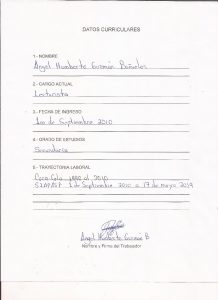 DATOS CURRICULARES
1.- NOMBRE
Angel Humberto Guzmán Bañuelos
2.- CARGO ACTUAL
Lecturista
3.- FECHA DE INGRESO
1ro de Septiembre 2010
4.- GRADO DE ESTUDIOS
Secundaria
5.- TRAYECTORIA LABORAL
Coca-Cola al 2010
1 de Septiembre 2010 a 17 de mayo 2019
Angel Humberto Guzman B
Nombre y Firma del Trabajador